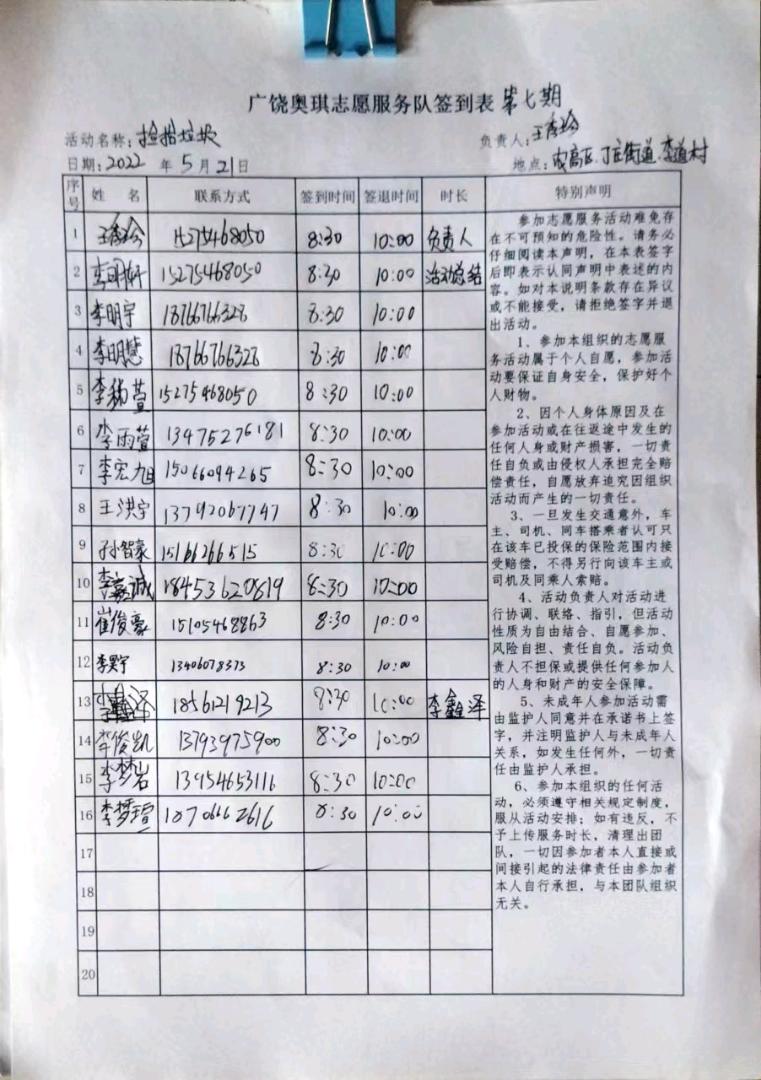 广饶奥琪志愿服务队签到表 第七期
活动名称：捡拾垃圾 负责人：王秀玲
日期：2022 年 5 月 21 日 地点：农高区.丁庄街道.李道村
序号 姓 名 联系方式 签到时间 签退时间 时长 特别声明
1 王秀玲 15275468050 8:30 10:00 负责人
2 李明妍 15275468050 8:30 10:00 活动总结
3 李明宇 18766766328 8:30 10:00
4 李明慧 18766766328 8:30 10:00
5 萱 15275468050 8:30 10:00
6 李雨萱 13475276181 8:30 10:00
7 李宏旭 15066094265 8:30 10:00
8 王洪宇 13792067747 8:30 10:00
9 孙智豪 15166266515 8:30 10:00
10 李嘉诚 18453620819 8:30 10:00
11 崔俊豪 15105468863 8:30 10:00
12 李 宇 13406078373 8:30 10:00
13 18561219213 8:30 10:00 李鑫泽
14 李俊凯 13793975900 8:30 10:00
15 李梦岩 13954653116 8:30 10:00
16 李梦瑄 8:30 10:00
17
18
19
20
参加志愿服务活动难免存
在不可预知的危险性。请务必
仔细阅读本声明，在本表签字
后即表示认同声明中表述的内
容。如对本说明条款存在异议
或不能接受，请拒绝签字并退
出活动。
1、参加本组织的志愿服
务活动属于个人自愿，参加活
动要保证自身安全，保护好个
人财物。
2、因个人身体原因及在
参加活动或在往返途中发生的
任何人身或财产损害，一切责
任自负或由侵权人承担完全赔
偿责任，自愿放弃追究因组织
活动而产生的一切责任。
3、一旦发生交通意外，车
主、司机、同车搭乘者认可只
在该车已投保的保险范围内接
受赔偿，不得另行向该车主或
司机及同乘人索赔。
4、活动负责人对活动进
行协调、联络、指引，但活动
性质为自由结合、自愿参加、
风险自担、责任自负。活动负
责人不担保或提供任何参加人
的人身和财产的安全保障。
5、未成年人参加活动需
由监护人同意并在承诺书上签
字，并注明监护人与未成年人
关系，如发生任何外，一切责
任由监护人承担。
6、参加本组织的任何活
动，必须遵守相关规定制度，
服从活动安排；如有违反，不
予上传服务时长，清理出团
队，一切因参加者本人直接或
间接引起的法律责任由参加者
本人自行承担，与本团队组织
无关。